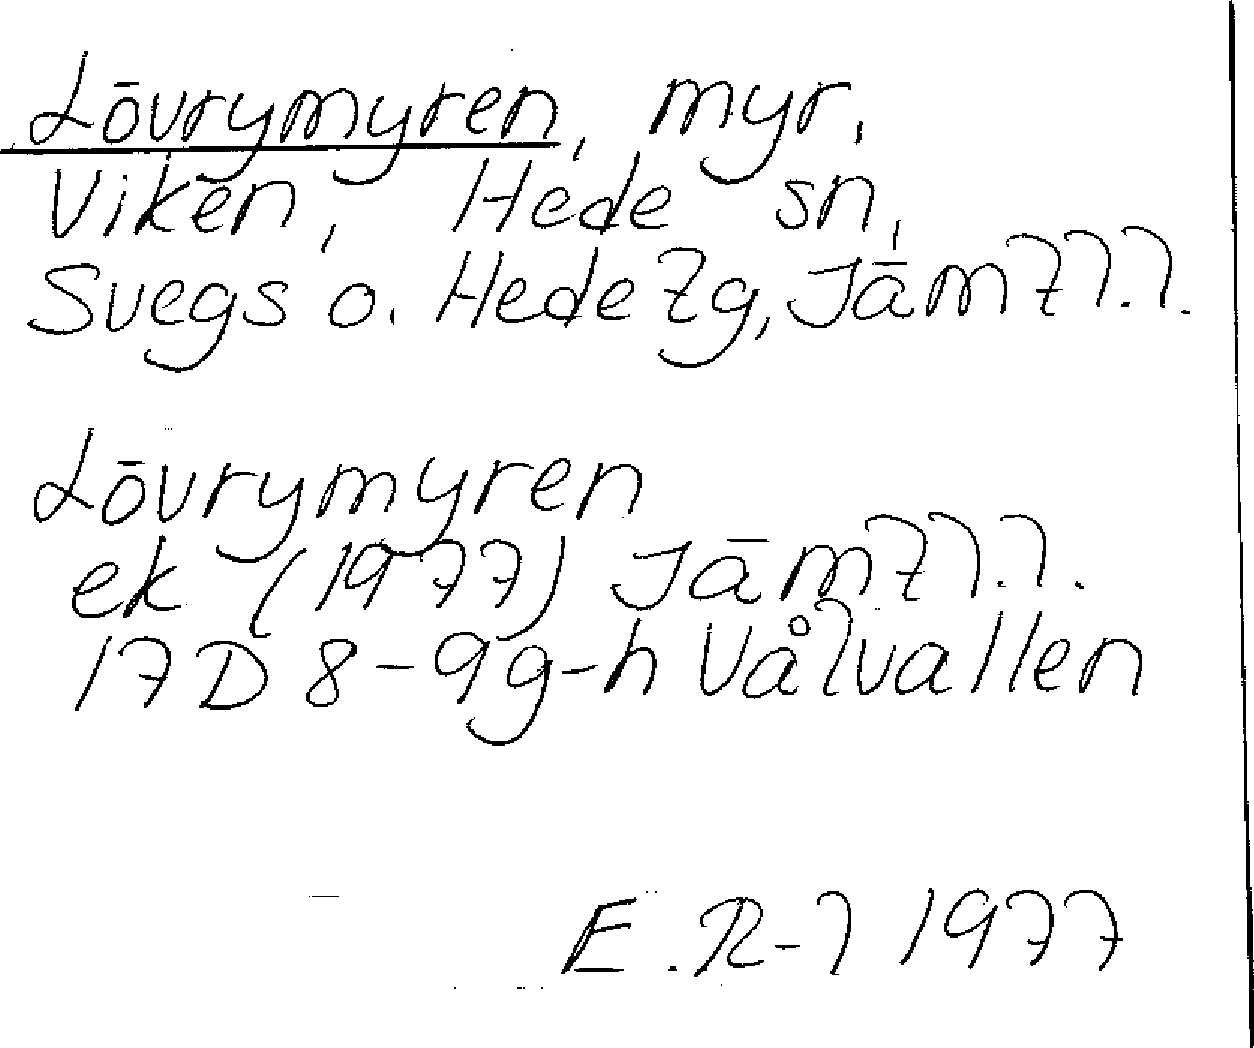 Lövrymyren, myr,
Viken, Hede sn,
Svegs o. Hede tg, Jämtl.l.
Lövrymyren
ek (1977) Jämtl.l.
17D 8-9g-h Vålvallen
E. R-l 1977